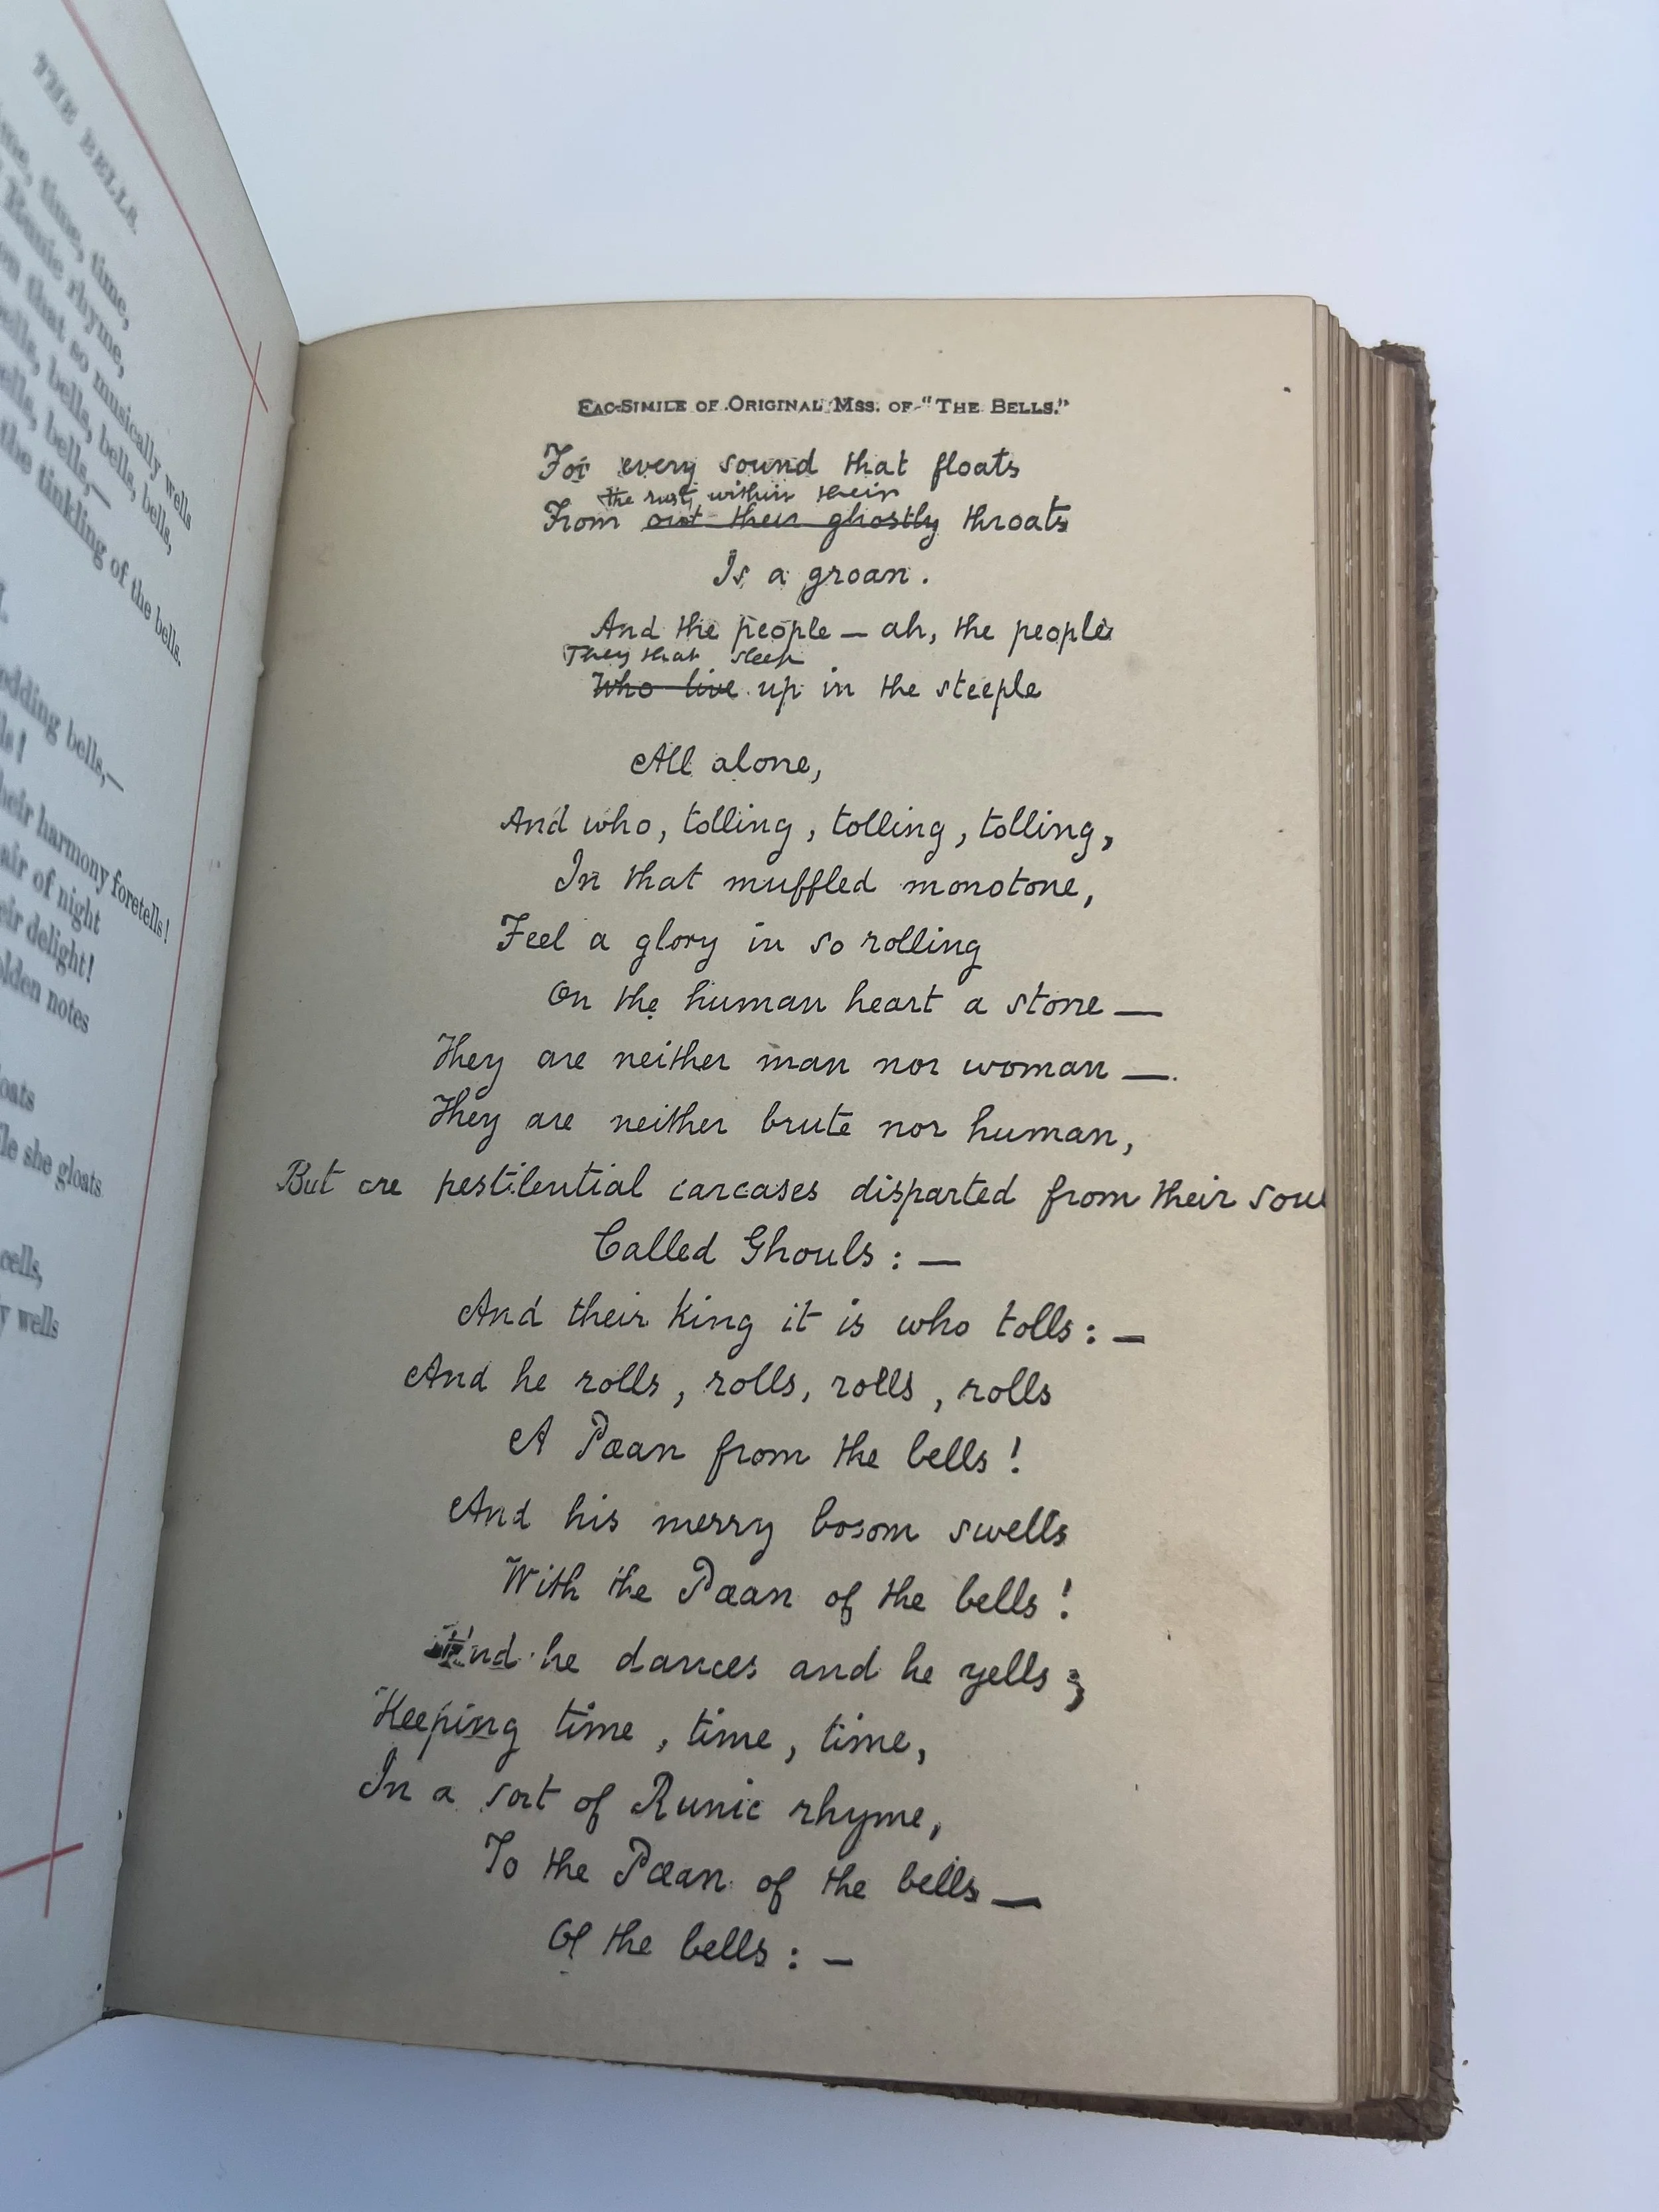 THE BELLS.
me, time, time,
Runic rhyme,
on that so musically wells
bells, bells, bells, bells,
bells, bells,—
the tinkling of the bells.
I.
edding bells,—
ls!
heir harmony foretells!
air of night
eir delight!
olden notes
oats
tle she gloats
cells,
y wells
FAC-SIMILE OF ORIGINAL MSS. OF "THE BELLS."
For every sound that floats
the rust within their
From out their ghostly throats
Is a groan.
And the people — ah, the people
They that sleep
Who live up in the steeple
All alone,
And who, tolling, tolling, tolling,
In that muffled monotone,
Feel a glory in so rolling
On the human heart a stone —
They are neither man nor woman —
They are neither brute nor human,
But are pestilential carcases disparted from their soul
Called Ghouls: —
And their king it is who tolls: —
And he rolls, rolls, rolls, rolls
A Pæan from the bells!
And his merry bosom swells
With the Pæan of the bells!
And he dances and he yells;
Keeping time, time, time,
In a sort of Runic rhyme,
To the Pæan of the bells —
Of the bells: —